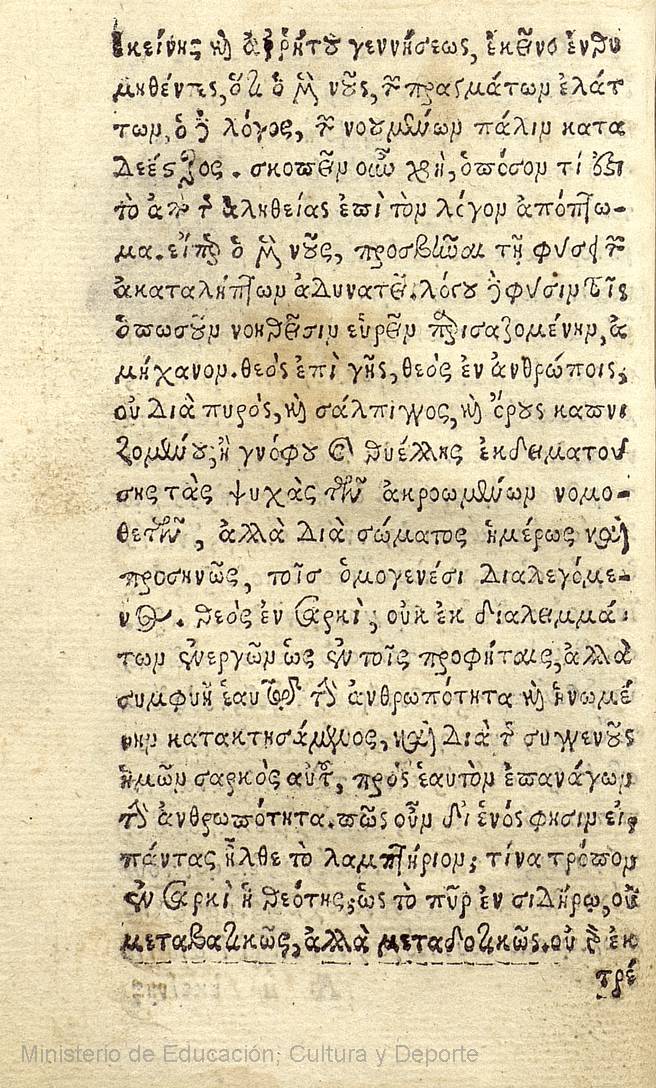 ἐκείνης καὶ ἀῤῥήτου γεννήσεως, ἐκεῖνο ἐνθυ
μηθέντες, ὅτι ὁ μὲν νοῦς, τῶν πραγμάτων ἐλάτ
των, ὁ δὲ λόγος, τῶν νοουμένων πάλιν κατα
δεέστερος. σκοπεῖν οὖν χρὴ, ὁπόσον τί ἐστι
τὸ ἀπὸ τῆς ἀληθείας ἐπὶ τὸν λόγον ἀπόπτω-
μα. εἴπερ ὁ μὲν νοῦς, προσβῆναι τῇ φύσει τῶν
ἀκαταλήπτων ἀδυνατεῖ. λόγου δὲ φύσιν τοῖς
ὁπωσοῦν νοηθεῖσιν εὑρεῖν παρισαζομένην, ἀ
μήχανον. θεὸς ἐπὶ γῆς, θεὸς ἐν ἀνθρώποις,
οὐ διὰ πυρὸς, καὶ σάλπιγγος, καὶ ὄρους καπνι
ζομένου, ἢ γνόφου καὶ θυέλλης ἐκδειματού
σης τὰς ψυχὰς τῶν ἀκροωμένων νομο-
θετῶν, ἀλλὰ διὰ σώματος ἡμέρως καὶ
προσηνῶς, τοῖς ὁμογενέσι διαλεγόμε-
νος. θεὸς ἐν σαρκὶ, οὐκ ἐκ διαλειμμά
των ἐνεργῶν ὡς ἐν τοῖς προφήταις, ἀλλὰ
συμφυῆ ἑαυτῷ τὴν ἀνθρωπότητα καὶ ἡνωμέ
νην κατακτησάμενος, καὶ διὰ τῆς συγγενοῦς
ἡμῶν σαρκὸς αὐτοῦ, πρὸς ἑαυτὸν ἐπανάγων
τὴν ἀνθρωπότητα. πῶς οὖν δι ἑνός φησιν εἰς
πάντας ἦλθε τὸ λαμπτήριον; τίνα τρόπον
ἐν σαρκὶ ἡ θεότης; ὡς τὸ πῦρ ἐν σιδήρῳ, οὐ
μεταβατικῶς, ἀλλὰ μεταδοτικῶς. οὐ γὰρ ἐκ
τρέ
Ministerio de Educación, Cultura y Deporte